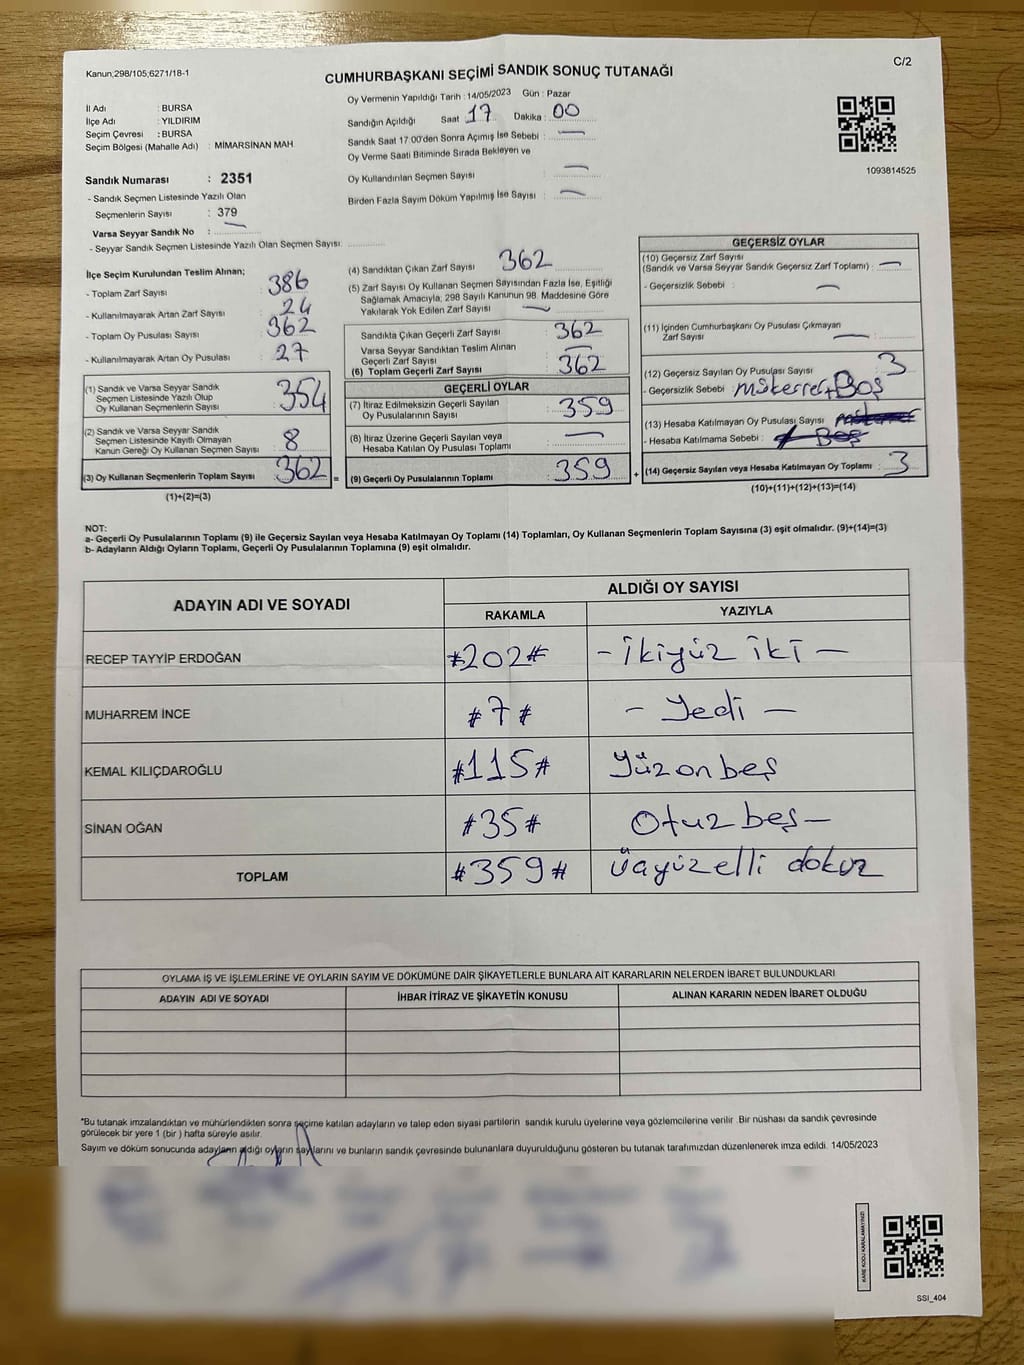 Kanun;298/105;6271/18-1
C/2
CUMHURBAŞKANI SEÇİMİ SANDIK SONUÇ TUTANAĞI
İl Adı : BURSA
İlçe Adı : YILDIRIM
Seçim Çevresi : BURSA
Seçim Bölgesi (Mahalle Adı) : MİMARSİNAN MAH.
Sandık Numarası : 2351
- Sandık Seçmen Listesinde Yazılı Olan
Seçmenlerin Sayısı : 379
Varsa Seyyar Sandık No : —
- Seyyar Sandık Seçmen Listesinde Yazılı Olan Seçmen Sayısı:
Oy Vermenin Yapıldığı Tarih : 14/05/2023 Gün : Pazar
Sandığın Açıldığı Saat : 17 Dakika : 00
Sandık Saat 17:00'den Sonra Açımış İse Sebebi : —
Oy Verme Saati Bitiminde Sırada Bekleyen ve
Oy Kullandırılan Seçmen Sayısı : —
Birden Fazla Sayım Döküm Yapılmış İse Sayısı : —
1093814525
İlçe Seçim Kurulundan Teslim Alınan;
- Toplam Zarf Sayısı : 386
- Kullanılmayarak Artan Zarf Sayısı : 24
- Toplam Oy Pusulası Sayısı : 362
- Kullanılmayarak Artan Oy Pusulası : 27
(1) Sandık ve Varsa Seyyar Sandık
Seçmen Listesinde Yazılı Olup
Oy Kullanan Seçmenlerin Sayısı : 354
(2) Sandık ve Varsa Seyyar Sandık
Seçmen Listesinde Kayıtlı Olmayan
Kanun Gereği Oy Kullanan Seçmen Sayısı : 8
(3) Oy Kullanan Seçmenlerin Toplam Sayısı : 362
(1)+(2)=(3)
=
(4) Sandıktan Çıkan Zarf Sayısı : 362
(5) Zarf Sayısı Oy Kullanan Seçmen Sayısından Fazla İse, Eşitliği
Sağlamak Amacıyla; 298 Sayılı Kanunun 98. Maddesine Göre
Yakılarak Yok Edilen Zarf Sayısı : —
Sandıkta Çıkan Geçerli Zarf Sayısı : 362
Varsa Seyyar Sandıktan Teslim Alınan
Geçerli Zarf Sayısı : —
(6) Toplam Geçerli Zarf Sayısı : 362
GEÇERLİ OYLAR
(7) İtiraz Edilmeksizin Geçerli Sayılan
Oy Pusulalarının Sayısı : 359
(8) İtiraz Üzerine Geçerli Sayılan veya
Hesaba Katılan Oy Pusulaları Toplamı : —
(9) Geçerli Oy Pusulalarının Toplamı : 359
+
GEÇERSİZ OYLAR
(10) Geçersiz Zarf Sayısı
(Sandık ve Varsa Seyyar Sandık Geçersiz Zarf Toplamı) : —
- Geçersizlik Sebebi : —
(11) İçinden Cumhurbaşkanı Oy Pusulası Çıkmayan
Zarf Sayısı : —
(12) Geçersiz Sayılan Oy Pusulası Sayısı : 3
- Geçersizlik Sebebi : mükerrer+Boş
(13) Hesaba Katılmayan Oy Pusulası Sayısı :
- Hesaba Katılmama Sebebi : Boş
(14) Geçersiz Sayılan veya Hesaba Katılmayan Oy Toplamı : 3
(10)+(11)+(12)+(13)=(14)
NOT:
a- Geçerli Oy Pusulalarının Toplamı (9) ile Geçersiz Sayılan veya Hesaba Katılmayan Oy Toplamı (14) Toplamları, Oy Kullanan Seçmenlerin Toplam Sayısına (3) eşit olmalıdır. (9)+(14)=(3)
b- Adayların Aldığı Oyların Toplamı, Geçerli Oy Pusulalarının Toplamına (9) eşit olmalıdır.
ADAYIN ADI VE SOYADI ALDIĞI OY SAYISI
RAKAMLA YAZIYLA
RECEP TAYYİP ERDOĞAN #202# - ikiyüz iki -
MUHARREM İNCE #7# - Yedi -
KEMAL KILIÇDAROĞLU #115# Yüzonbeş
SİNAN OĞAN #35# Otuzbeş-
TOPLAM #359# üçyüzelli dokuz
OYLAMA İŞ VE İŞLEMLERİNE VE OYLARIN SAYIM VE DÖKÜMÜNE DAİR ŞİKAYETLERLE BUNLARA AİT KARARLARIN NELERDEN İBARET BULUNDUKLARI
ADAYIN ADI VE SOYADI İHBAR İTİRAZ VE ŞİKAYETİN KONUSU ALINAN KARARIN NEDEN İBARET OLDUĞU
*Bu tutanak imzalandıktan ve mühürlendikten sonra seçime katılan adayların ve talep eden siyasi partilerin sandık kurulu üyelerine veya gözlemcilerine verilir. Bir nüshası da sandık çevresinde
görülecek bir yere 1 (bir ) hafta süreyle asılır.
Sayım ve döküm sonucunda adayların aldığı oyların sayılarını ve bunların sandık çevresinde bulunanlara duyurulduğunu gösteren bu tutanak tarafımızdan düzenlenerek imza edildi. 14/05/2023
KARE KODU KARALAMAYINIZ!
SSI_404